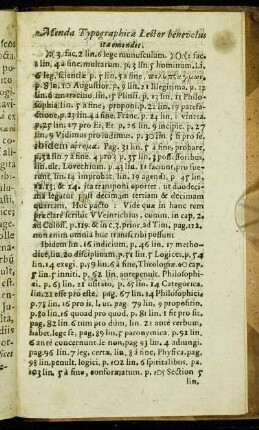 Menda Typographica Lector benevolus
ita emendet.
fac. 2 lin. 6 lege munusculum. ):():( fac.
2 lin. 4 à fine, multarum. p. 3 lin. 5 hominum. l. 1.
6 leg. scientia p. 5 lin. 5 à fine,
p. 8 in. 10 Augustior. p. 9 lin. 21 illegitima, p. 12
lin. 6 amaracino, lin. 5 Plinii. p. 13 lin. 11 Philo-
sophia, lin. 5 à fine, proponi. p. 21 lin. 19 patefa-
ctione, p. 23 lin. 4 à fine, Franc. p. 24 lin. 1 inventa.
p. 25 lin. 17 pro Ei, Et. p. 26 lin. 9 incipit. p. 27
lin. 9 Vidimus pro indimus. p. 30 lin. 6 fi pro fe,
ibidem Pag. 31 lin. 5 à fine, probare,
p. 32 lin. 7 à fine 4 pro 3. p. 35 lin. 3 possessoribus,
lin. ult. Lovechium. p. 43 lin. 11 faciunt. p. 44 lin.
11 fuerint, lin. 14 improbat. lin. 19 agendi. p. 45 lin.
12, 13, & 14. ita transponi oportet, ut duodeci-
ma legatur post decimam tertiam & decimam
quartam. Hoc pacto: Vide qua in hanc rem
præclarè scribit VVeinrichius, comm. in cap. 2,
ad Coloss. p. 119. & in c. 7. prior. ad Tim. pag. 112,
non enim omnia huc transcribi possunt
Ibidem lin. 16 indicium, p. 46 lin. 17 metho-
dicè, lin. 20 disciplinum, p. 51 lin. 5 Logices, p. 54
lin. 14 exegi. p. 59 lin. 6 à fine, Theologiæ ac cap.
5 lin. 5 inniti. p. 62 lin. antepenult. Philosophi-
æ, p. 63 lin. 21 usitato, p. 65 lin. 14 Categorica.
lin. 21 esse pro este. pag. 67 lin. 14 Philosophicis
p. 78 lin. 16 pro is l. ut. pag. 79 lin. 9 propositum,
p. 80 lin. 16 quoad pro quod. p. 81 lin. 1 fit pro sit,
pag. 82 lin. 6 tùm pro dùm, lin. 21 antè verbum,
habet lege, pag. 89 lin. 5 paronymica. p. 92 lin.
6 antè concernunt l. non pag. 93 lin. 4 adjungi.
pag. 96 lin. 7 leg. certæ, lin. 8 à fine, Physica, pag.
98 lin. penult. logici, p. 102 lin. 6 spiritalibus, pa.
103 lin. 5 à fine, conformatum. p. 105 Section 5
lin,